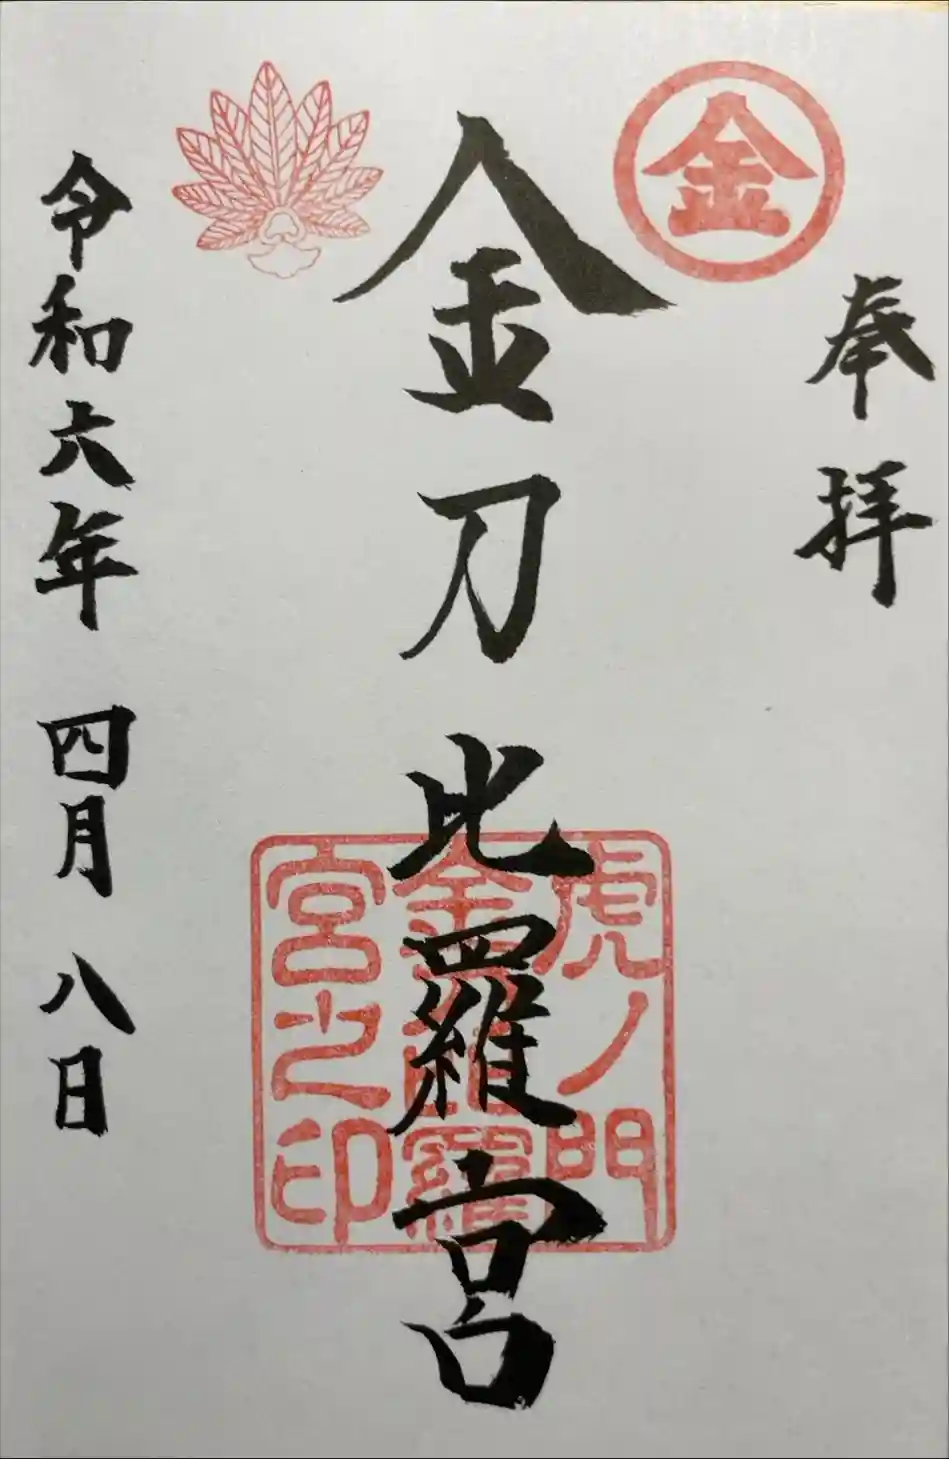 金
奉拝
金刀比羅宮
虎ノ門
金刀比羅
宮之印
令和六年 四月 八日